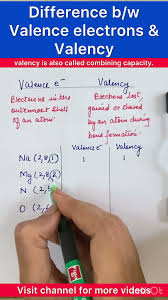 Difference b/w
Valence electrons &
Valency
valency is also called combining capacity.
Valence e⁻
Valency
Electrons in the
outermost shell
of an atom.
Electrons lost,
gained or shared
by an atom during
bond formation.
Valence e⁻ Valency
Na (2,8,1) 1 1
Mg (2,8,2)
N (2,5
O (2,6
Visit channel for more videos